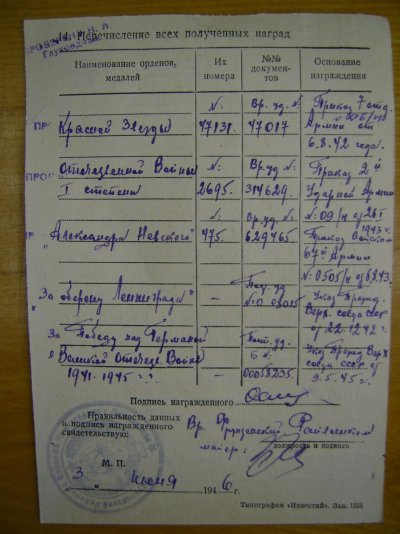 14. Перечисление всех полученных наград
Наименование орденов, медалей
Их номера
№№ документов
Основание награждения
№: Вр. уд. №: Приказ 7 отд.
Красной Звезды 47131. 47017 Армии от
6.8.42 года.
Отечественной Войны №: Вр. уд №: Приказ 2й
I степени 2695. 314629. Ударной Армии
№: Вр. уд. №: №09/н от
"Александра Невского" 475. 629465. Приказ Войскам
67й Армии
№0505/н от
"За оборону Ленинграда" – Указ Презид.
Верх. совета СССР
от 22.12.42 г.
За Победу над Германией
в Великой Отечеств. Войне – Указ През Верх
1941-1945 г.г. 0058235. совета СССР от
9.5.45 г.
Подпись награжденного
Правильность данных
и подпись награжденного
свидетельствую:
Вр. Фрунзенский Райвоенком
майор:
должность и подпись
М. П.
3 июня 1946 г.
Типография "Известий". Зак. 1558